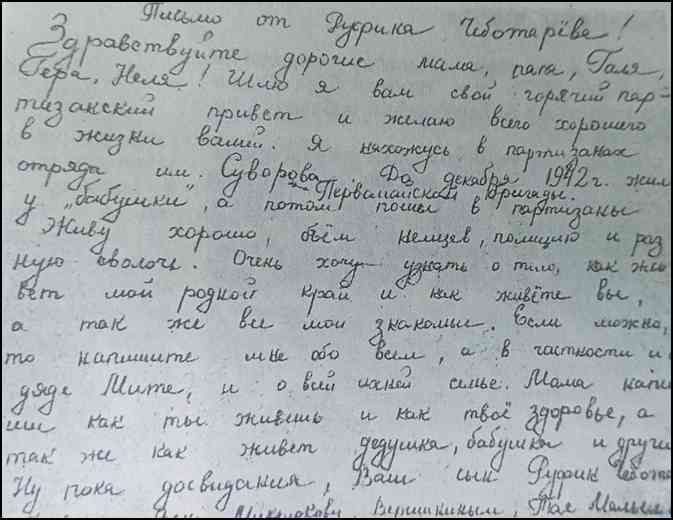 Письмо от Руфика Чеботарёва!
Здравствуйте дорогие мама, папа, Галя,
Гера, Неля! Шлю я вам свой горячий пар-
тизанский привет и желаю всего хорошего
в жизни вашей. Я нахожусь в партизанах
отряда им. Суворова. До декабря 1942 г. жил
Первомайской бригады.
у "бабушки", а потом пошёл в партизаны
Живу хорошо, бьём немцев, полицию и раз
ную сволочь. Очень хочу узнать о том, как жи
вёт мой родной край и как живёте вы,
а так же все мои знакомые. Если можно,
то напишите мне обо всём, а в частности и
дяде Мите, и о всей ихней семье. Мама напи
ши как ты живёшь и как твоё здоровье, а
так же как живёт дедушка, бабушка и други
Ну пока досвидания, Ваш сын Руфик Чебота
Вершининым,